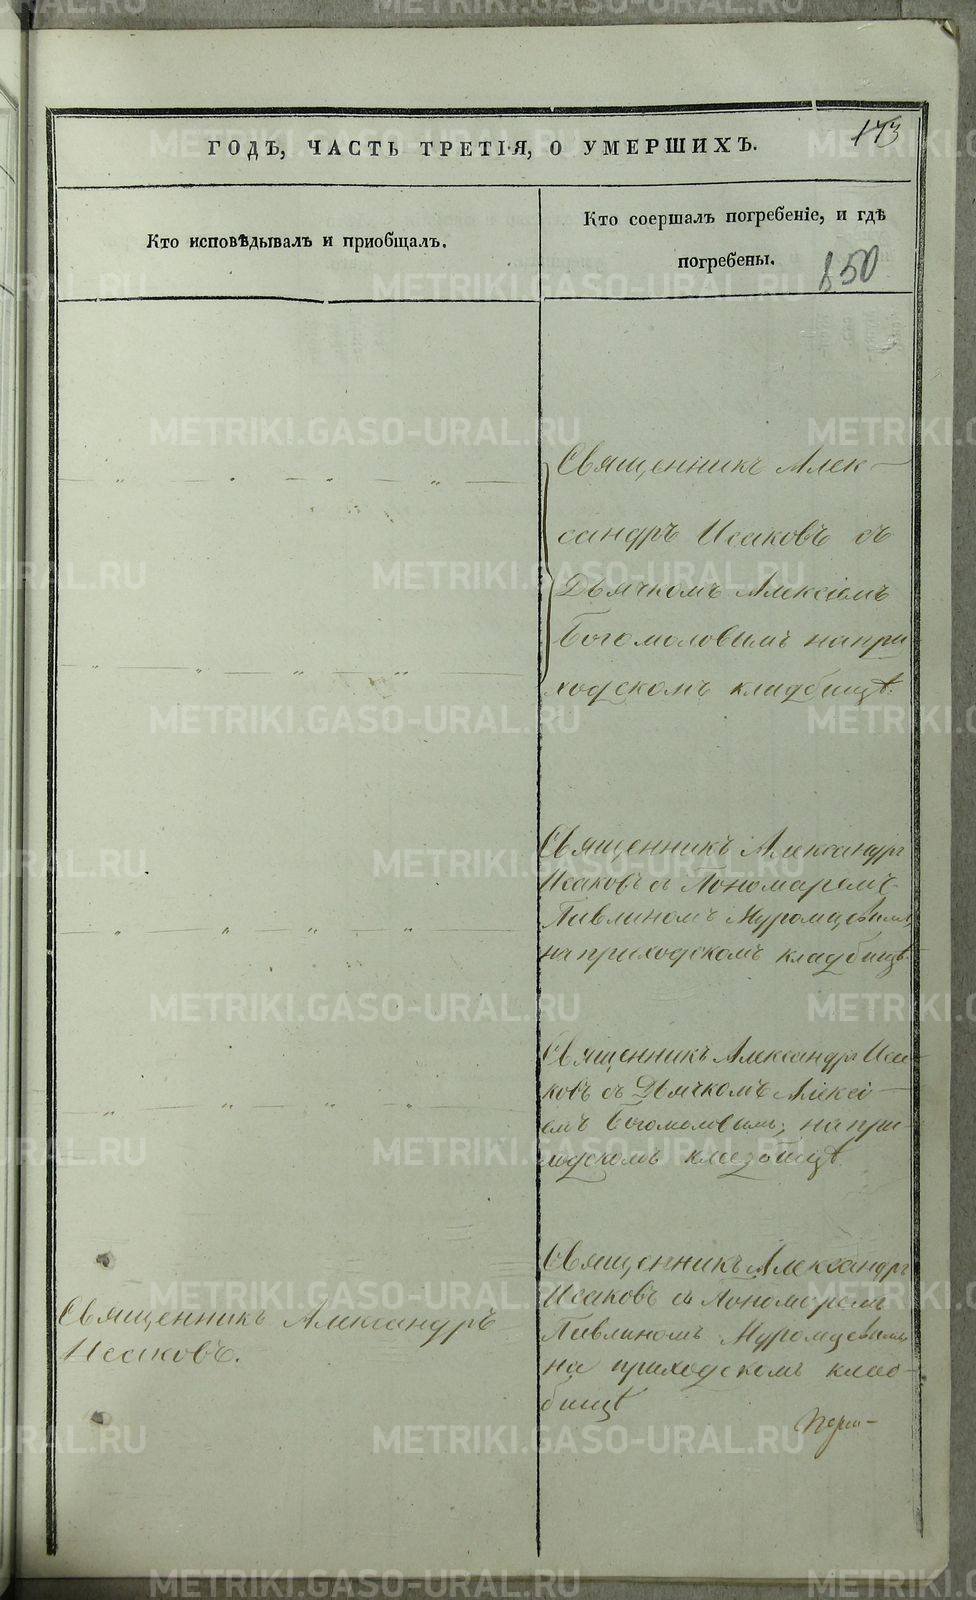 173
ГОДЪ, ЧАСТЬ ТРЕТІЯ, О УМЕРШИХЪ.
Кто исповѣдывалъ и приобщалъ.
Кто соершалъ погребеніе, и гдѣ
погребены.
850
Священникъ Алек-
сандръ Исаковъ съ
Дьячкомъ Алексіемъ
Богомоловымъ на при
ходскомъ кладбищѣ.
Священникъ Александръ
Исаковъ съ Пономаремъ
Павлиномъ Муромцевымъ,
на приходскомъ кладбищѣ
Священникъ Александръ Иса-
ковъ съ Дьячкомъ Алексі-
емъ Богомоловымъ, на при-
ходскомъ кладбищѣ
Священникъ Александръ
Исаковъ.
Священникъ Александръ
Исаковъ съ Пономаремъ
Павлиномъ Муромцевымъ
на приходскомъ клад-
бищѣ
METRIKI.GASO-URAL.RU